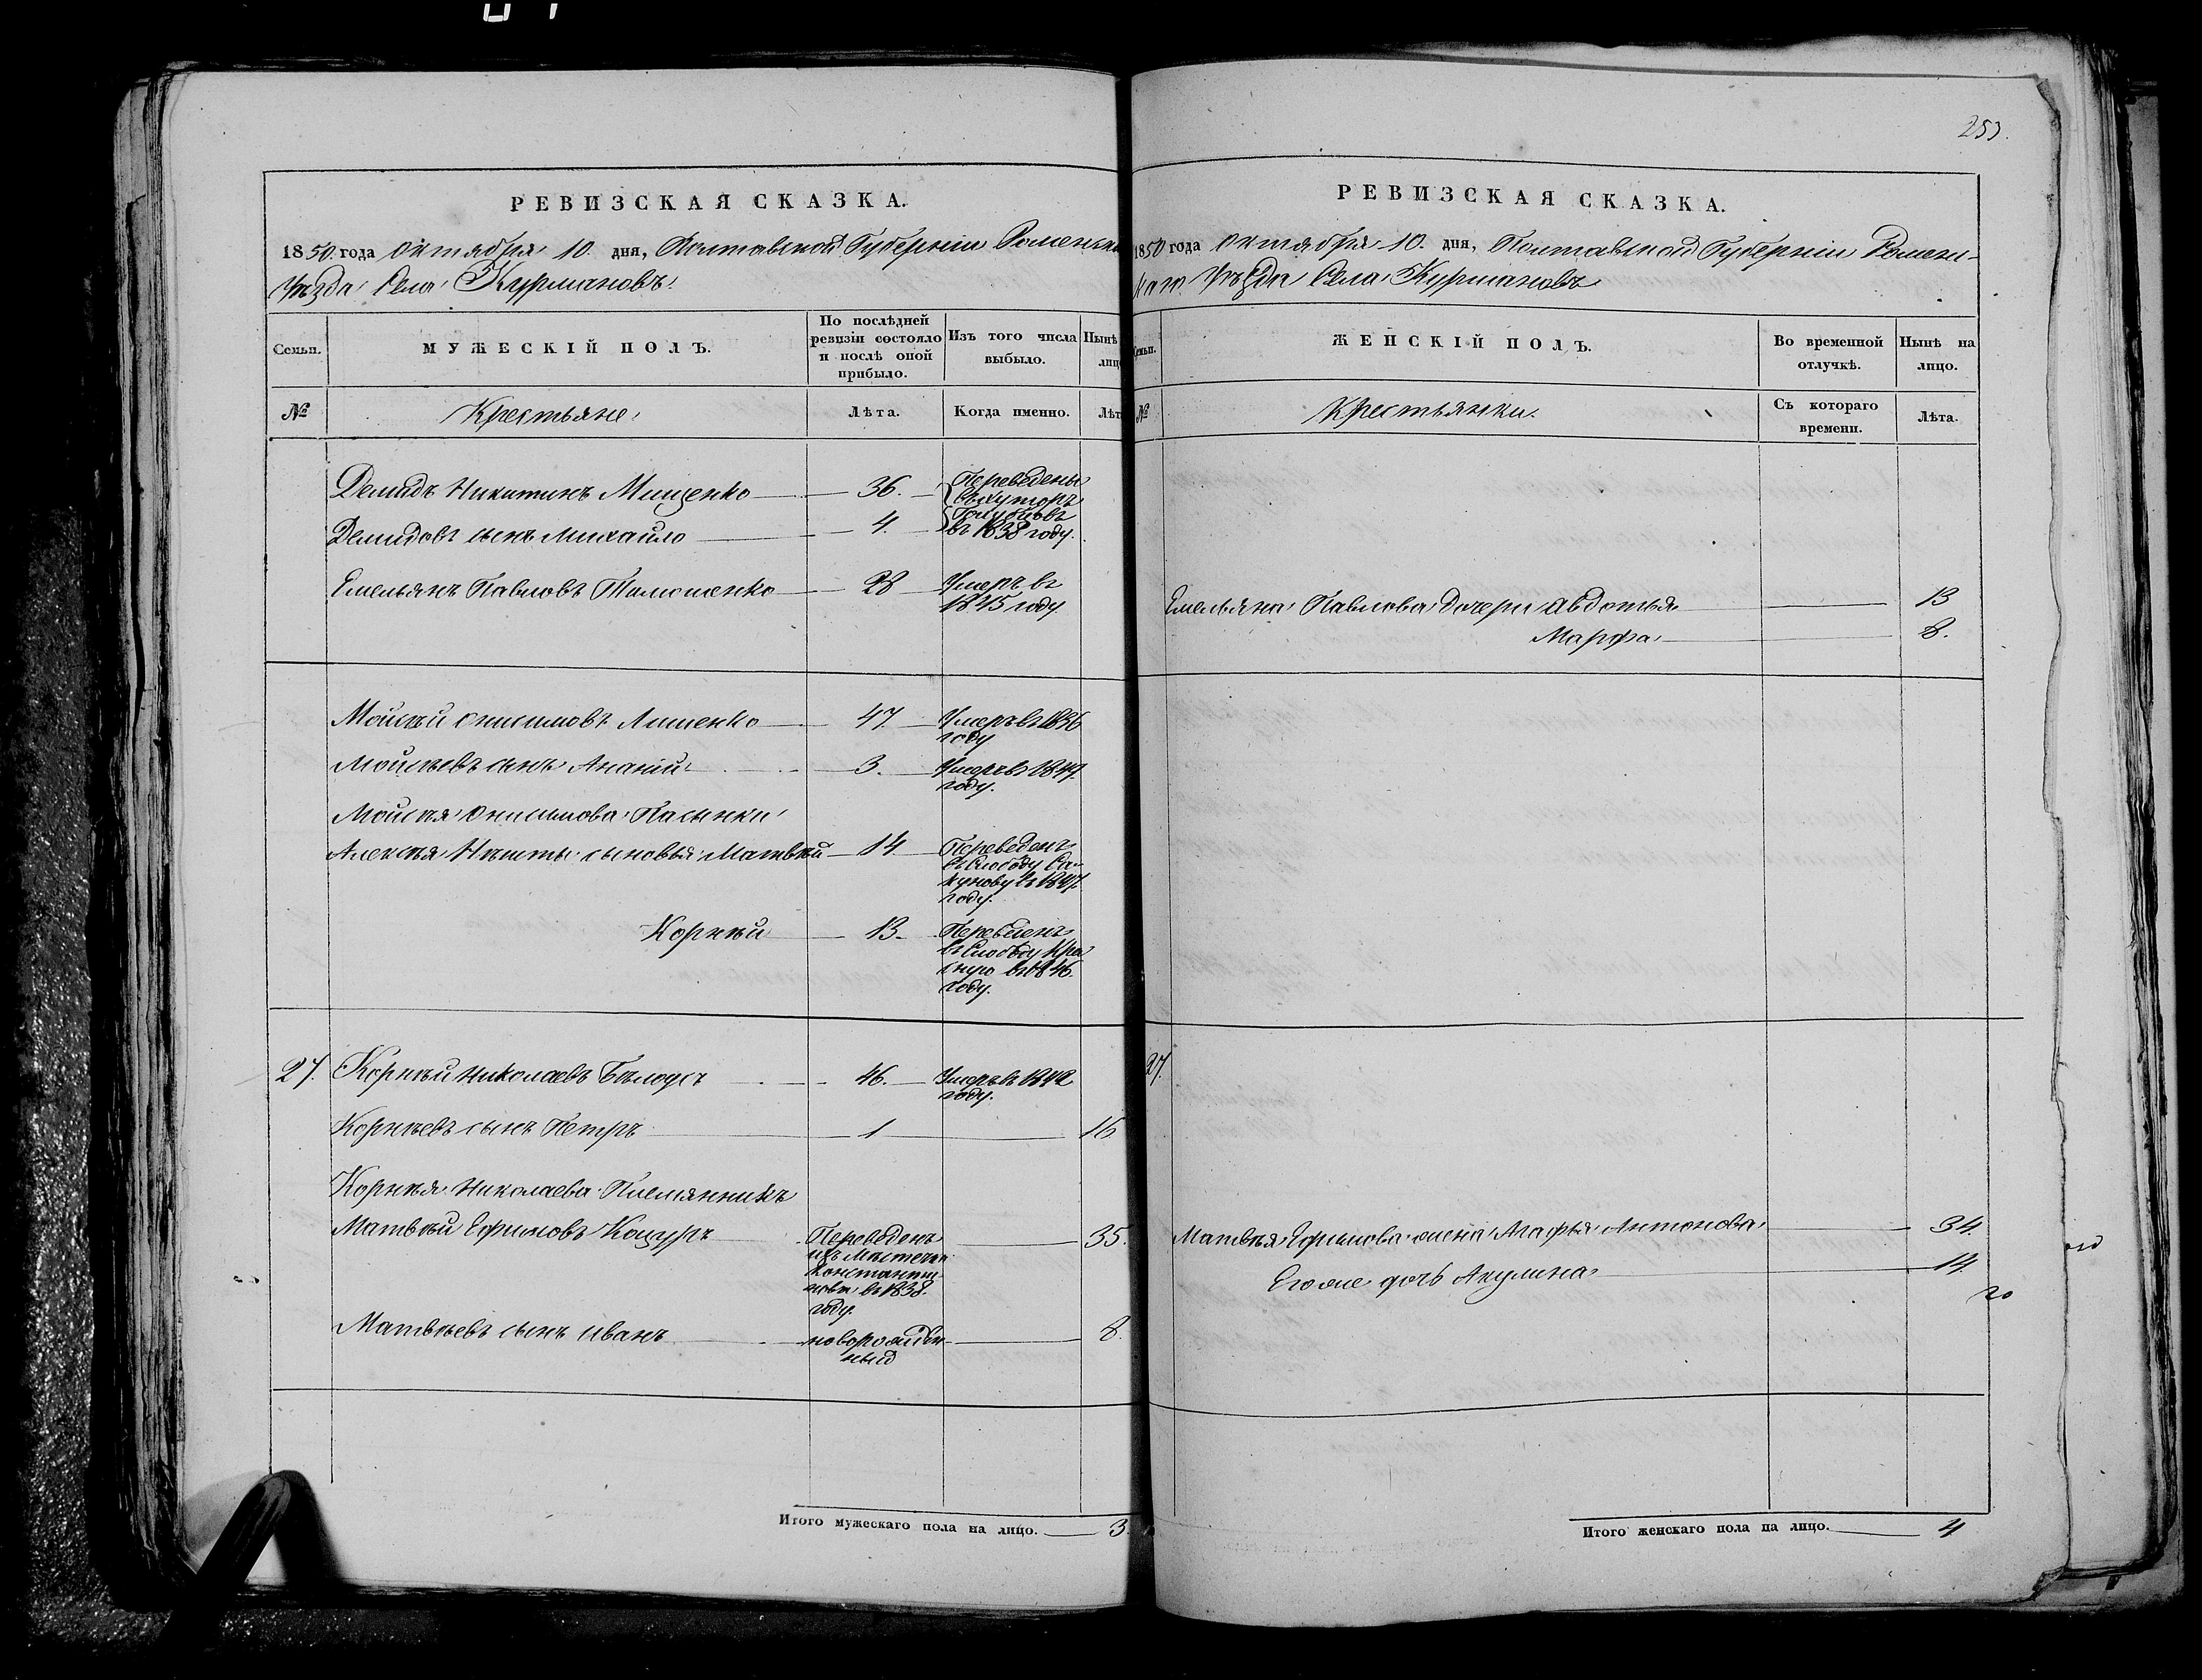 253.
РЕВИЗСКАЯ СКАЗКА.
1850. года Октября 10. дня, Полтавской Губерніи Роменска
Уѣзда Села Курмановъ.
Семьи.
МУЖЕСКІЙ ПОЛЪ.
По послѣдней
ревизіи состояло
и послѣ оной
прибыло.
Изъ того числа
выбыло.
Нынѣ
лиц
№
Крестьяне
Лѣта.
Когда именно.
Лѣт
Демидъ Никитинъ Мищенко 36. Переведены
въ хуторъ
Голубцовъ
въ 1838 году.
Демидовъ сынъ Михайло 4.
Емельянъ Павловъ Тимошенко 28 Умеръ въ
1845 году
Мойсѣй Онисимовъ Лишенко 47. Умеръ въ 1836
году
Мойсѣевъ сынъ Ананій 3. Умеръ въ 1847.
году.
Мойсѣя Онисимова Пасынки
Алексѣя сыновья Матвѣй 14 Переведенъ
въ Слободу Са-
кунову въ 1847.
году.
Корнѣй 13. Переведенъ
въ Слободу Кра
сную въ 1846.
году.
27. Корнѣй Николаевъ Бѣлоусъ 46. Умеръ въ 1842
году.
Корнѣевъ сынъ Петръ 1 16
Корнѣя Николаева Племянникъ
Матвѣй Ефимовъ Коцуръ Переведенъ 35.
изъ Мѣстечка
Константи-
нова въ 1838.
году.
Матвѣевъ сынъ Иванъ новорожден- 8.
ный
Итого мужескаго пола на лицо. 3.
РЕВИЗСКАЯ СКАЗКА.
1850 года Октября 10. дня, Полтавской Губерніи Ромен-
скаго Уѣзда Села Курмановъ
Семьи.
ЖЕНСКІЙ ПОЛЪ.
Во временной
отлучкѣ.
Нынѣ на
лицо.
№
Крестьянки.
Съ котораго
времени.
Лѣта.
Емельяна Павлова дочери Авдотья 13
Марфа 8.
27.
Матвѣя Ефимова жена Агафья Антонова 34.
Его же дочь Акулина 14.
Итого женскаго пола на лицо. 4